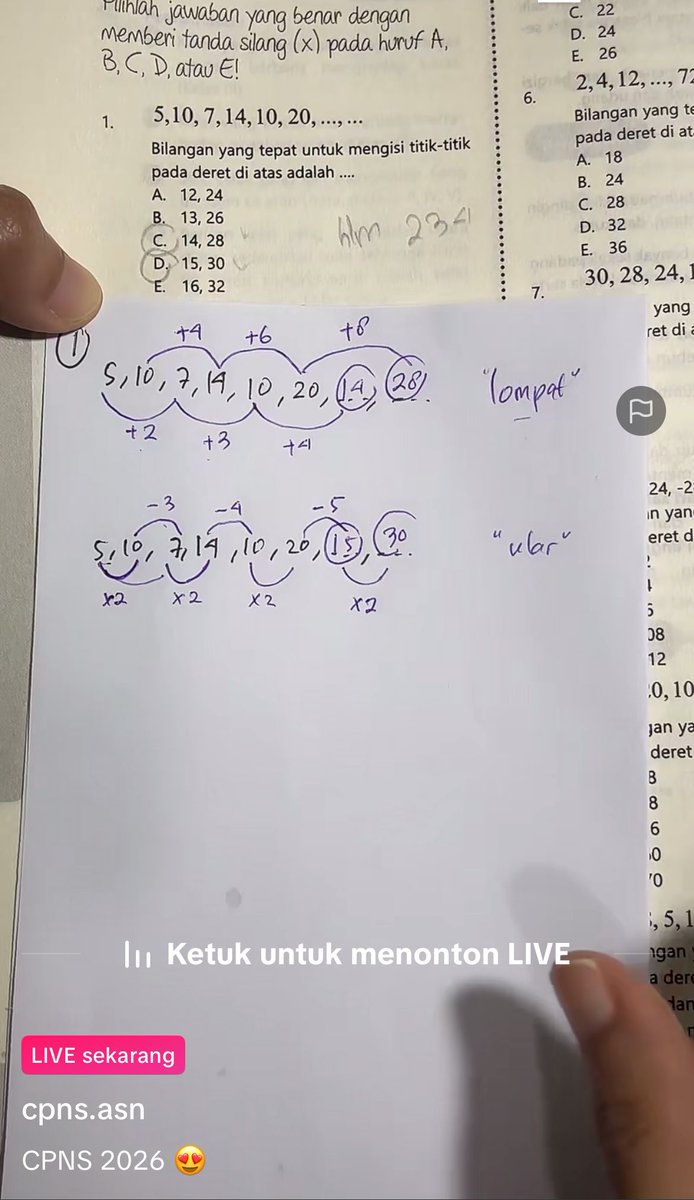 Pilihlah jawaban yang benar dengan
memberi tanda silang (x) pada huruf A,
B, C, D, atau E!
1. 5, 10, 7, 14, 10, 20, ..., ...
Bilangan yang tepat untuk mengisi titik-titik
pada deret di atas adalah ....
A. 12, 24
B. 13, 26
C. 14, 28
D. 15, 30
E. 16, 32
hlm 234
C. 22
D. 24
E. 26
6. 2, 4, 12, ..., 72
Bilangan yang te
pada deret di at
A. 18
B. 24
C. 28
D. 32
E. 36
7. 30, 28, 24, 1
yang
ret di a
24, -2
n yan
eret d
08
12
0, 10
gan ya
deret
8
8
6
, 5, 1
ngan
a dere
1
+4 +6 +8
5, 10, 7, 14, 10, 20, 14, 28 "lompat"
+2 +3 +4
-3 -4 -5
5, 10, 7, 14, 10, 20, 15, 30 "ular"
x2 x2 x2 x2
Ketuk untuk menonton LIVE
LIVE sekarang
cpns.asn
CPNS 2026 😍